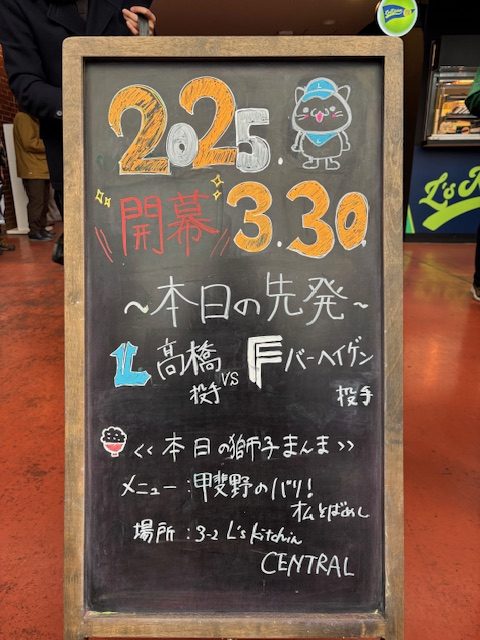 2025.
開幕 3.30
～本日の先発～
L 高橋投手 VS F バーヘイゲン投手
<<本日の獅子まんま>>
メニュー：甲斐野のバリ！
オムそばめし
場所：3-2 L's kitchin
CENTRAL